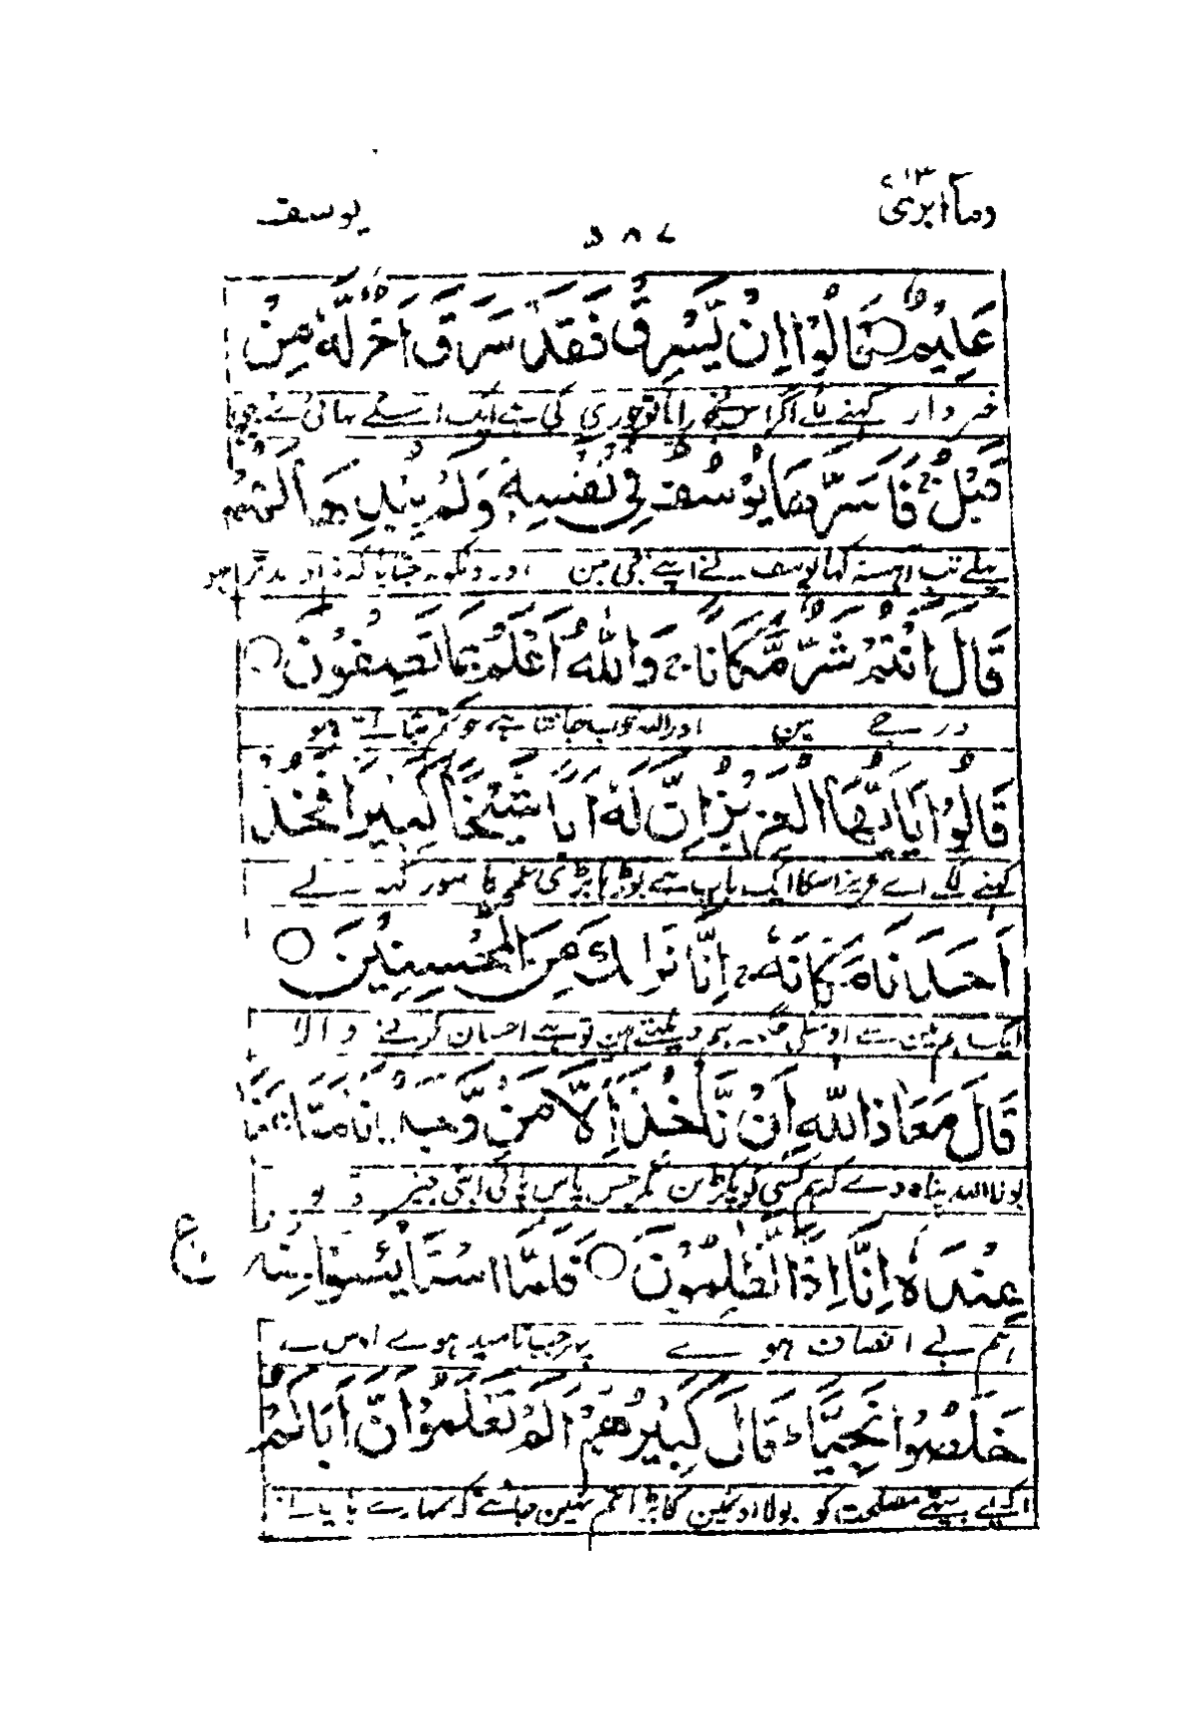 وما ابرئ ١٣
٥٨٧
يوسف
عَلِيْمٌ ○ قَالُوْا اِنْ يَّسْرِقْ فَقَدْ سَرَقَ اَخٌ لَّهٗ مِنْ
خبردار کہنے لگے اگر اس نے چورایا تو چوری کی ہے ایک اسکے بھائی نے
قَبْلُ ج فَاَسَرَّهَا يُوْسُفُ فِيْ نَفْسِهٖ وَلَمْ يُبْدِهَا لَهُمْ
پہلے تب آہستہ کہا یوسف نے اپنے جی مین اور ونکو نہ جتایا کہا تم اور بدتر ہو
قَالَ اَنْتُمْ شَرٌّ مَّكَانًا ج وَاللّٰهُ اَعْلَمُ بِمَا تَصِفُوْنَ ○
درجے مین اور اللہ خوب جانتا ہے جو تم بتاتے ہو
قَالُوْا يَا اَيُّهَا الْعَزِيْزُ اِنَّ لَهٗ اَبًا شَيْخًا كَبِيْرًا فَخُذْ
کہنے لگے اے عزیز اسکا ایک باپ ہے بوڑھا بڑی عمر کا سو رکھ لے
اَحَدَنَا مَكَانَهٗ ج اِنَّا نَرَاكَ مِنَ الْمُحْسِنِيْنَ ○
ایک ہم مین سے اوسکی جگہ ہم دیکھتے ہین تو ہے احسان کرنے والا
قَالَ مَعَاذَ اللّٰهِ اَنْ نَّأْخُذَ اِلَّا مَنْ وَّجَدْنَا مَتَاعَنَا
بولا اللہ پناہ دے کہ ہم کسی کو پکڑین مگر جس پاس پائی اپنی چیز تو
عِنْدَهٗ اِنَّا اِذًا لَّظٰلِمُوْنَ ○ فَلَمَّا اسْتَايْئَسُوْا مِنْهُ
ہم بے انصاف ہوے پھر جب نا امید ہوے اوس سے
ع
خَلَصُوْا نَجِيًّا ط قَالَ كَبِيْرُهُمْ اَلَمْ تَعْلَمُوْا اَنَّ اَبَاكُمْ
اکیلے بیٹھے مصلحت کو بولا اونمین کا بڑا تم نہین جانتے کہ تمہارے باپ نے